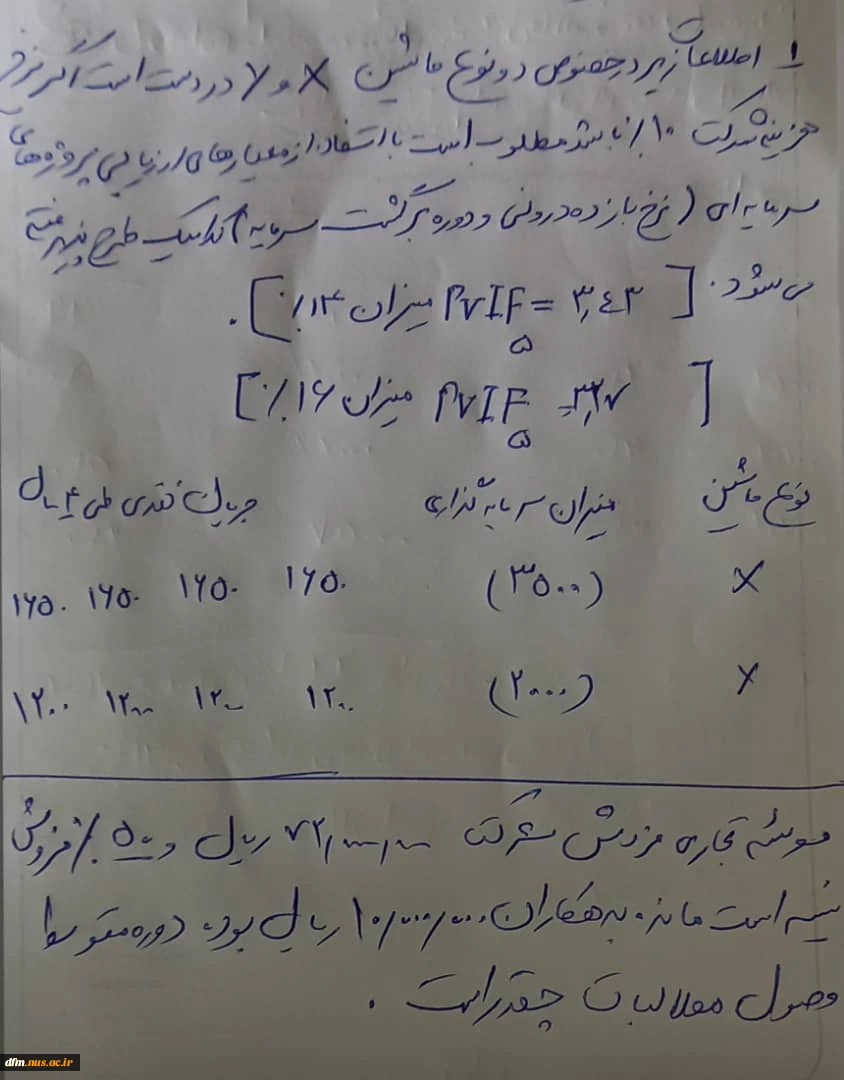 ۱ اطلاعات زیر در خصوص دو نوع ماشین X و Y در دست است اگر نرخ
هزینه شرکت ۱۰٪ باشد مطلوب است با استفاده از معیارهای ارزیابی پروژه های
سرمایه ای (نرخ بازده درونی و دوره برگشت سرمایه) کدامیک طرح پذیرفته
می شود. [ PVIF۵ = ۳٫۴۳ میزان ۱۴٪ ].
[ PVIF۵ = ۳٫۲۷ میزان ۱۶٪ ]
نوع ماشین میزان سرمایه گذاری جریان نقدی طی ۴ سال
X (۳۵۰۰) ۱۶۵۰ ۱۶۵۰ ۱۶۵۰ ۱۶۵۰
Y (۲۰۰۰) ۱۲۰۰ ۱۲۰۰ ۱۲۰۰ ۱۲۰۰
موسسه تجاری فروش شرکت ۷۲٫۰۰۰٫۰۰۰ ریال و ۵۰٪ فروش
نسیه است مانده بدهکاران ۱۰٫۰۰۰٫۰۰۰ ریال بود، دوره متوسط
وصول مطالبات چقدر است .
dfm.nus.ac.ir